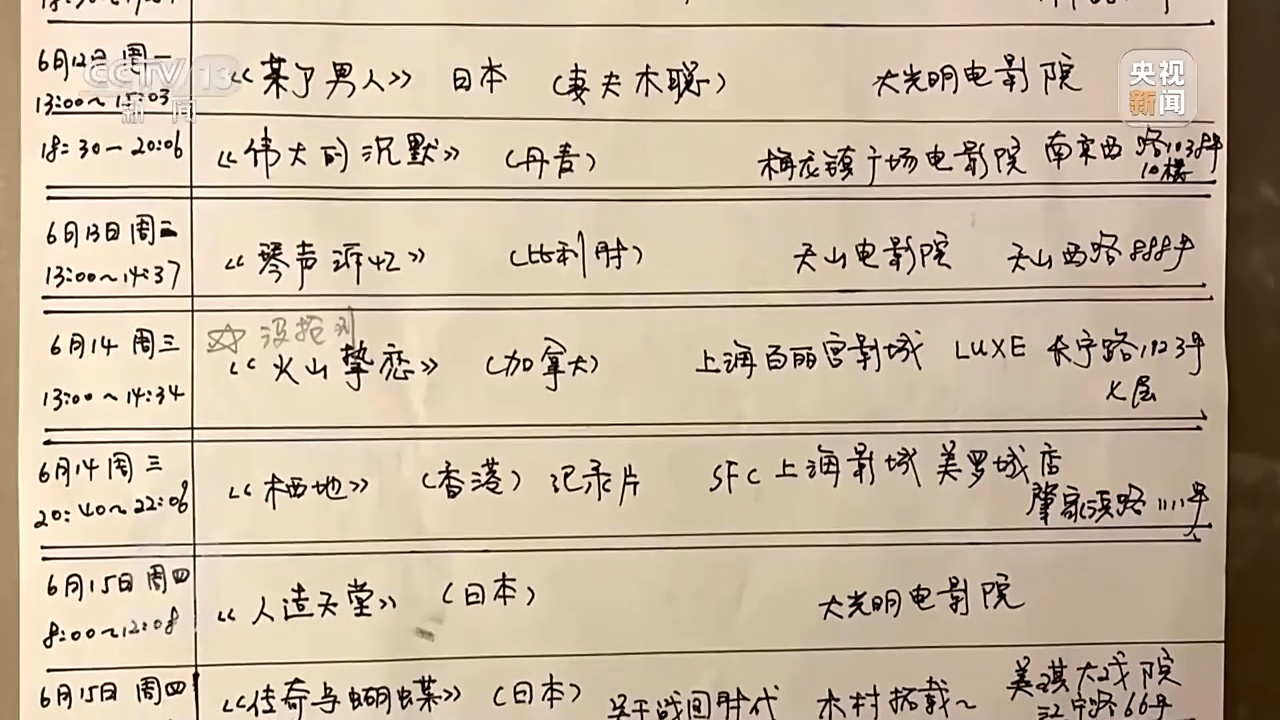 6月12日 周一
13:00～15:03
《某个男人》 日本 (妻夫木聪) 大光明电影院
CCTV 13
新闻
央视
新闻
18:30—20:06 《伟大的沉默》 (丹麦) 梅龙镇广场电影院 南京西路1038号
10楼
6月13日 周二
13:00～14:37
《琴声诉忆》 (比利时) 天山电影院 天山西路888号
☆ 没抢到
6月14 周三
13:00～14:34
《火山挚恋》 (加拿大) 上海百丽宫影城 LUXE 长宁路1123号
七层
6月14 周三
20:40～22:06
《栖地》 (香港) 记录片 SFC上海影城 美罗城店
肇家浜路1111号
6月15日 周四
8:00～12:08
《人造天堂》 (日本) 大光明电影院
6月15日 周四
《传奇与蝴蝶》 (日本) 关于战国时代 木村拓哉～ 美琪大戏院
江宁路66号